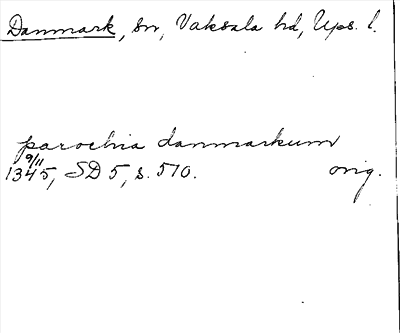 Danmark, sn, Vaksala hd, Ups. l.
parochia danmarkum
9/11
1345, SD 5, s. 510. orig.